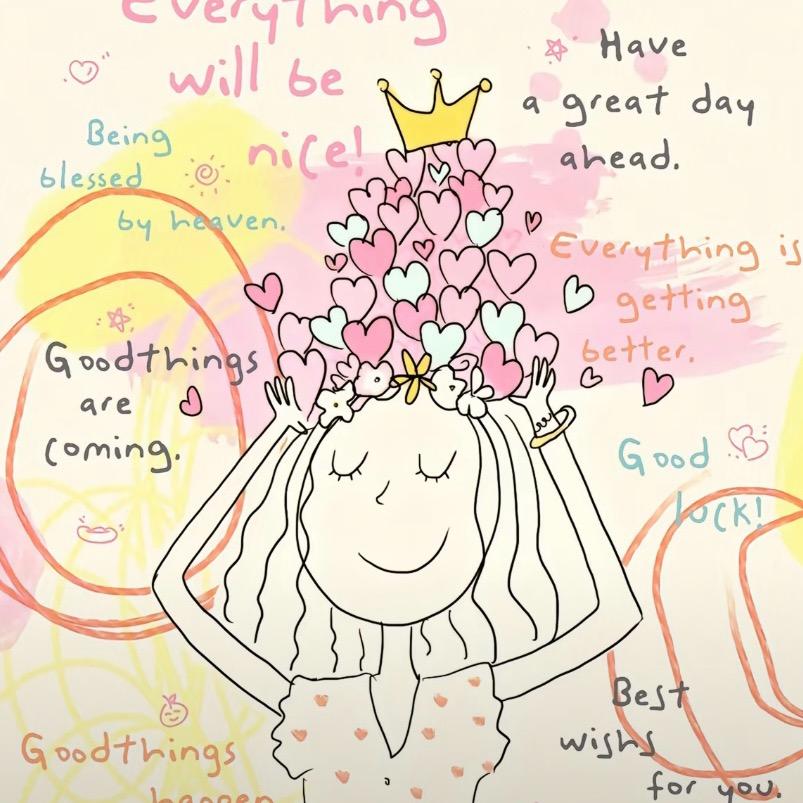 Everything
will be
nice!
Have
a great day
ahead.
Being
blessed
by heaven.
Everything is
getting
better.
Goodthings
are
coming.
Good
luck!
Best
wishs
for you.
Goodthings
happen